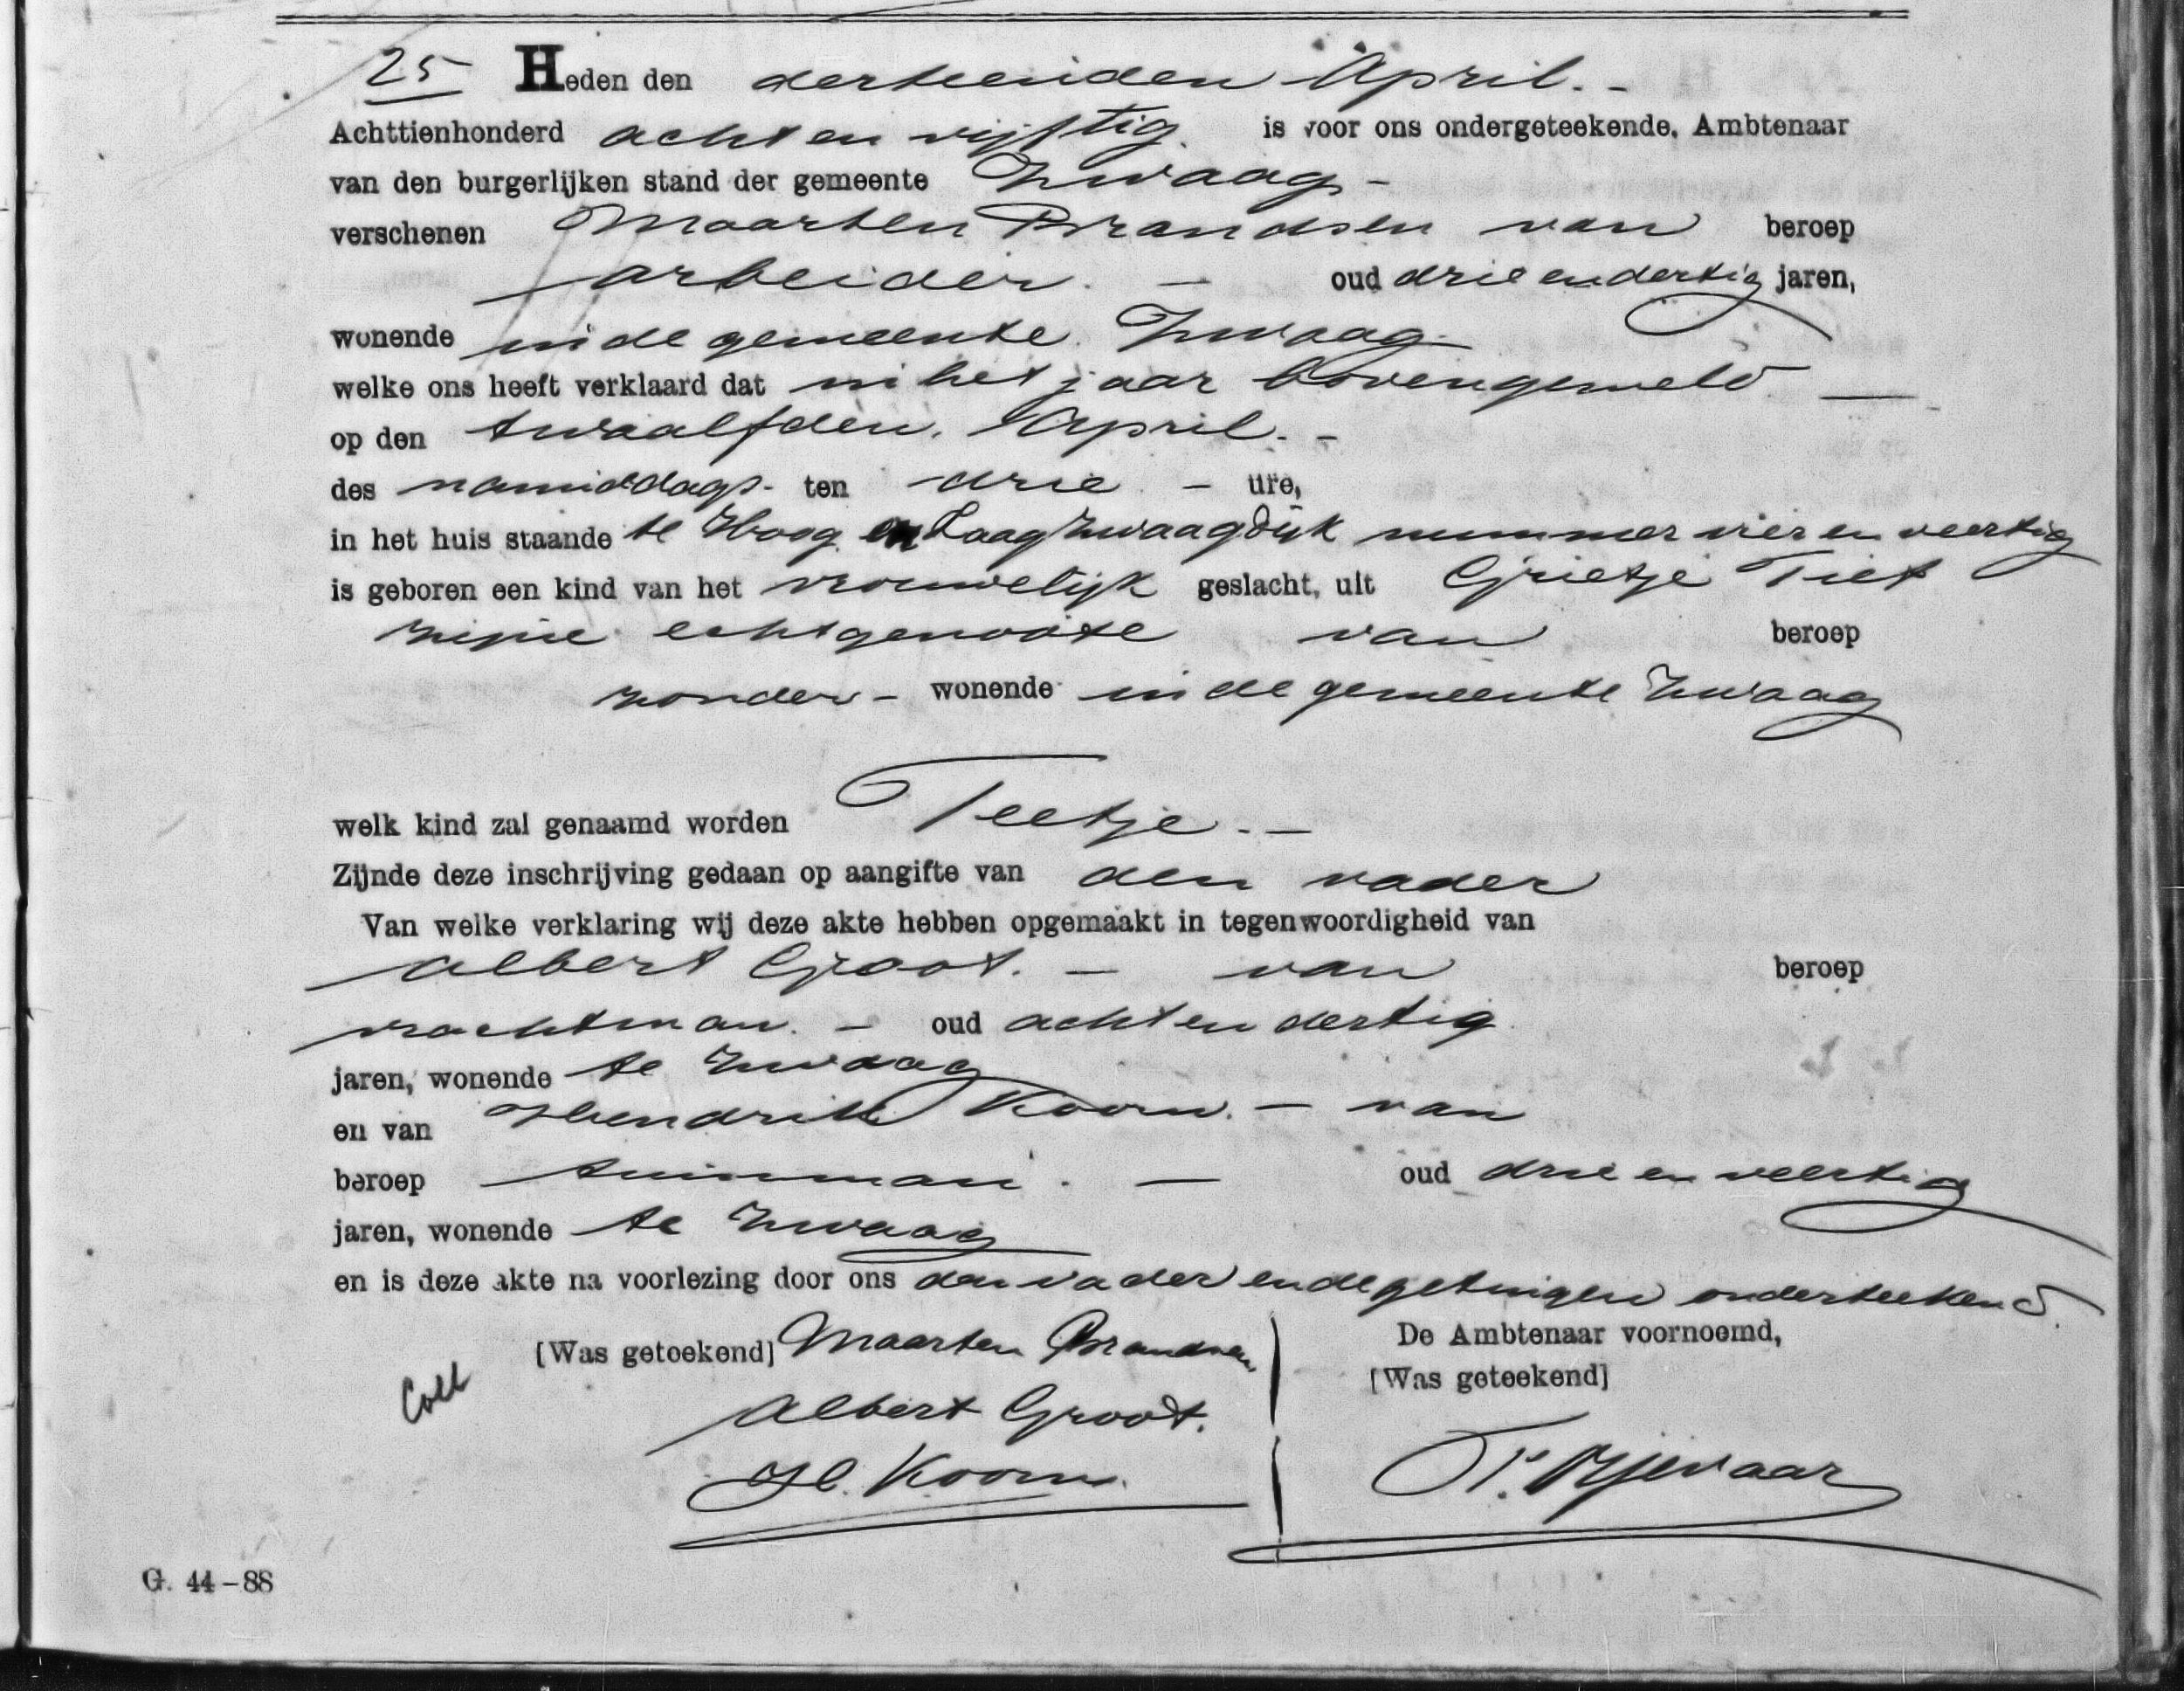 25 Heden den dertienden April. -
Achttienhonderd acht en vijftig is voor ons ondergeteekende, Ambtenaar
van den burgerlijken stand der gemeente Zwaag -
verschenen Maarten Brandsen van beroep
arbeider. - oud drie en dertig jaren,
wonende in de gemeente Zwaag -
welke ons heeft verklaard dat in het jaar bovengemeld -
op den twaalfden April. -
des namiddags - ten drie - ure,
in het huis staande te Hoog en Laag Zwaagdijk nummer vier en veertig
is geboren een kind van het vrouwelijk geslacht, uit Grietje Tiet
zijne echtgenoote van beroep
zonder - wonende in de gemeente Zwaag
welk kind zal genaamd worden Teetje. -
Zijnde deze inschrijving gedaan op aangifte van den vader
Van welke verklaring wij deze akte hebben opgemaakt in tegenwoordigheid van
Albert Groot. - van beroep
vrachtman. - oud acht en dertig
jaren, wonende te Zwaag
en van Hendrik Koorn. - van
beroep tuinman. - oud drie en veertig
jaren, wonende te Zwaag
en is deze akte na voorlezing door ons den vader en de getuigen onderteekend.
[Was geteekend] Maarten Brandsen,
De Ambtenaar voornoemd,
[Was geteekend]
Coll
Albert Groot.
H. Koorn.
G. 44-88